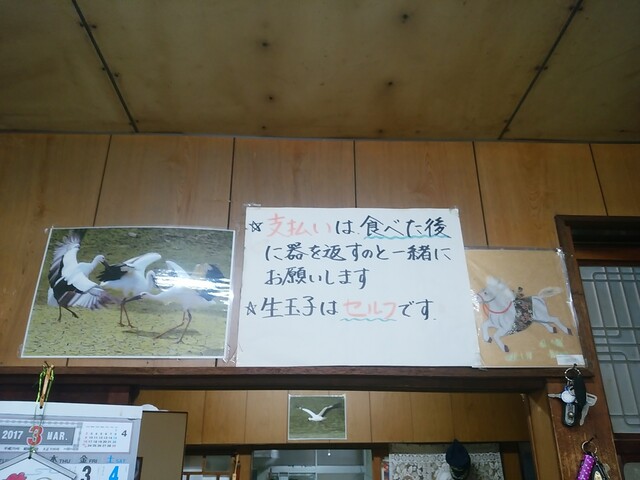 ☆支払いは食べた後
に器を返すのと一緒に
お願いします
☆生玉子はセルフです.
2017 3 MAR.
4
木 THU 金 FRI 土 SAT
3 4